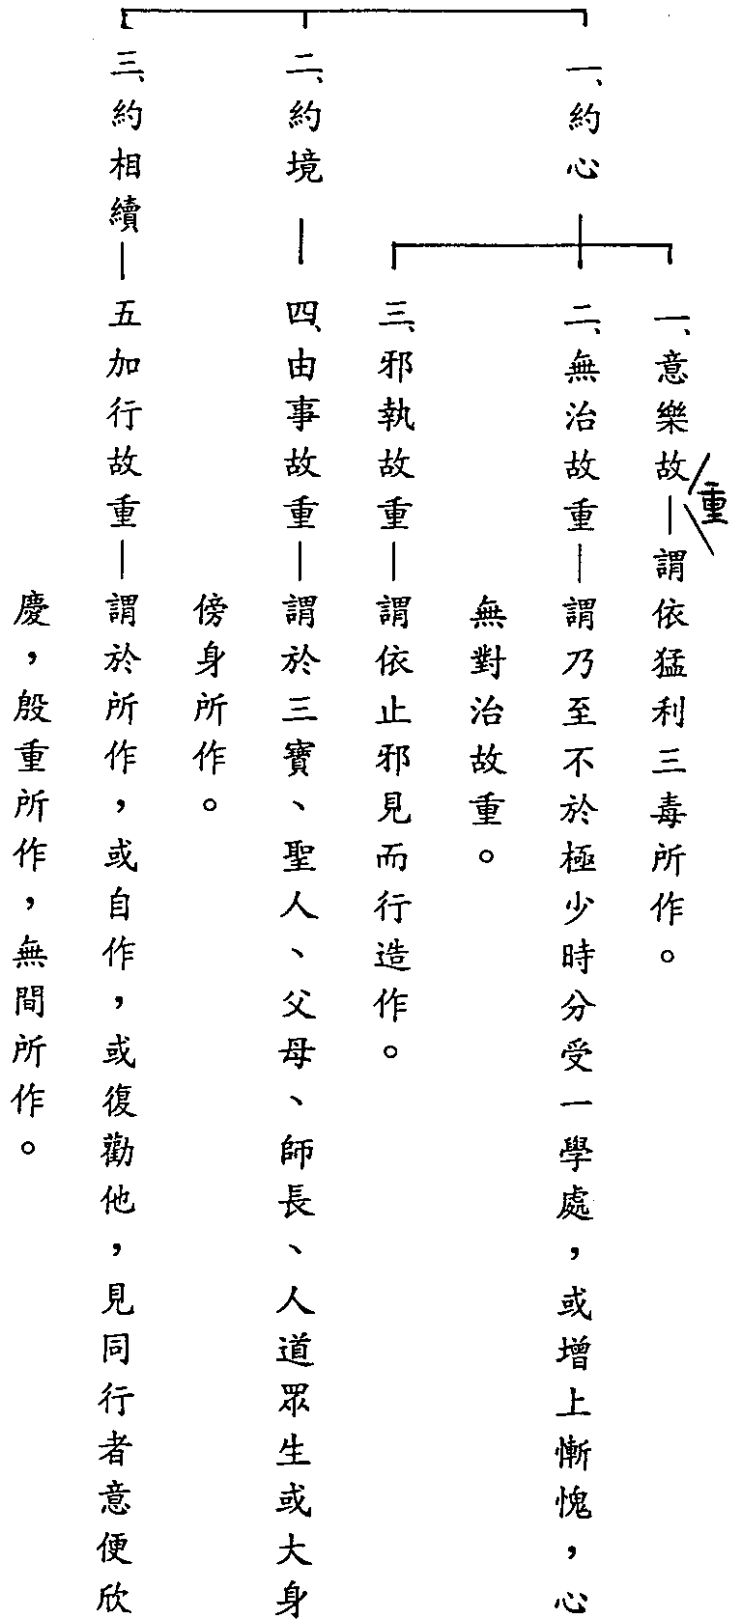 一、約心
一、意樂故重—謂依猛利三毒所作。
二、無治故重—謂乃至不於極少時分受一學處，或增上慚愧，心
無對治故重。
三、邪執故重—謂依止邪見而行造作。
二、約境
四、由事故重—謂於三寶、聖人、父母、師長、人道眾生或大身
傍身所作。
三、約相續
五加行故重—謂於所作，或自作，或復勸他，見同行者意便欣
慶，殷重所作，無間所作。